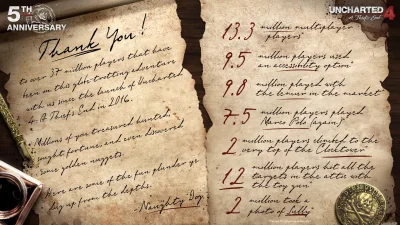 5TH
ANNIVERSARY
Thank You!
to over 37 million players that have
been on this globe-trotting adventure
with us since the launch of Uncharted
4: A Thief's End in 2016.
Millions of you treasured hunted,
sought fortune, and even discovered
some golden nuggets.
Here are some of the fun plunder we
dug up from the depths.
- Naughty Dog
UNCHARTED 4
A Thief's End
13.3 million multiplayer
players*
9.5 million players used
an accessibility option*
9.8 million played with
the lemur in the market*
7.5 million players played
Marco Polo (again)*
2 million players climbed to the
very top of the Clocktower*
12 million players hit all the
targets in the attic with
the toy gun*
2 million took a
photo of Sully*